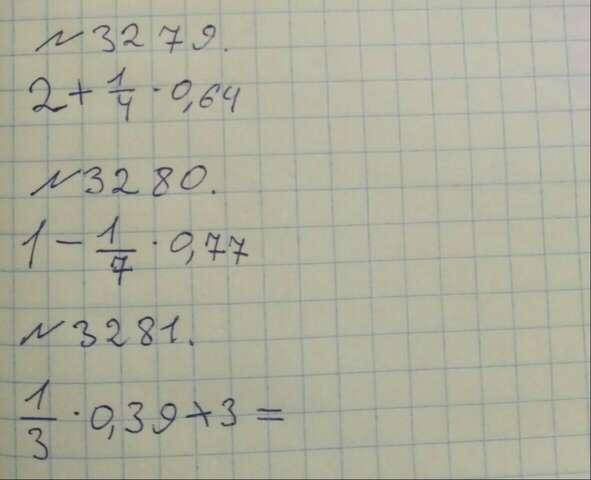 №3279.
2 + 1/4 · 0,64
№3280.
1 - 1/7 · 0,77
№3281.
1/3 · 0,39 + 3 =